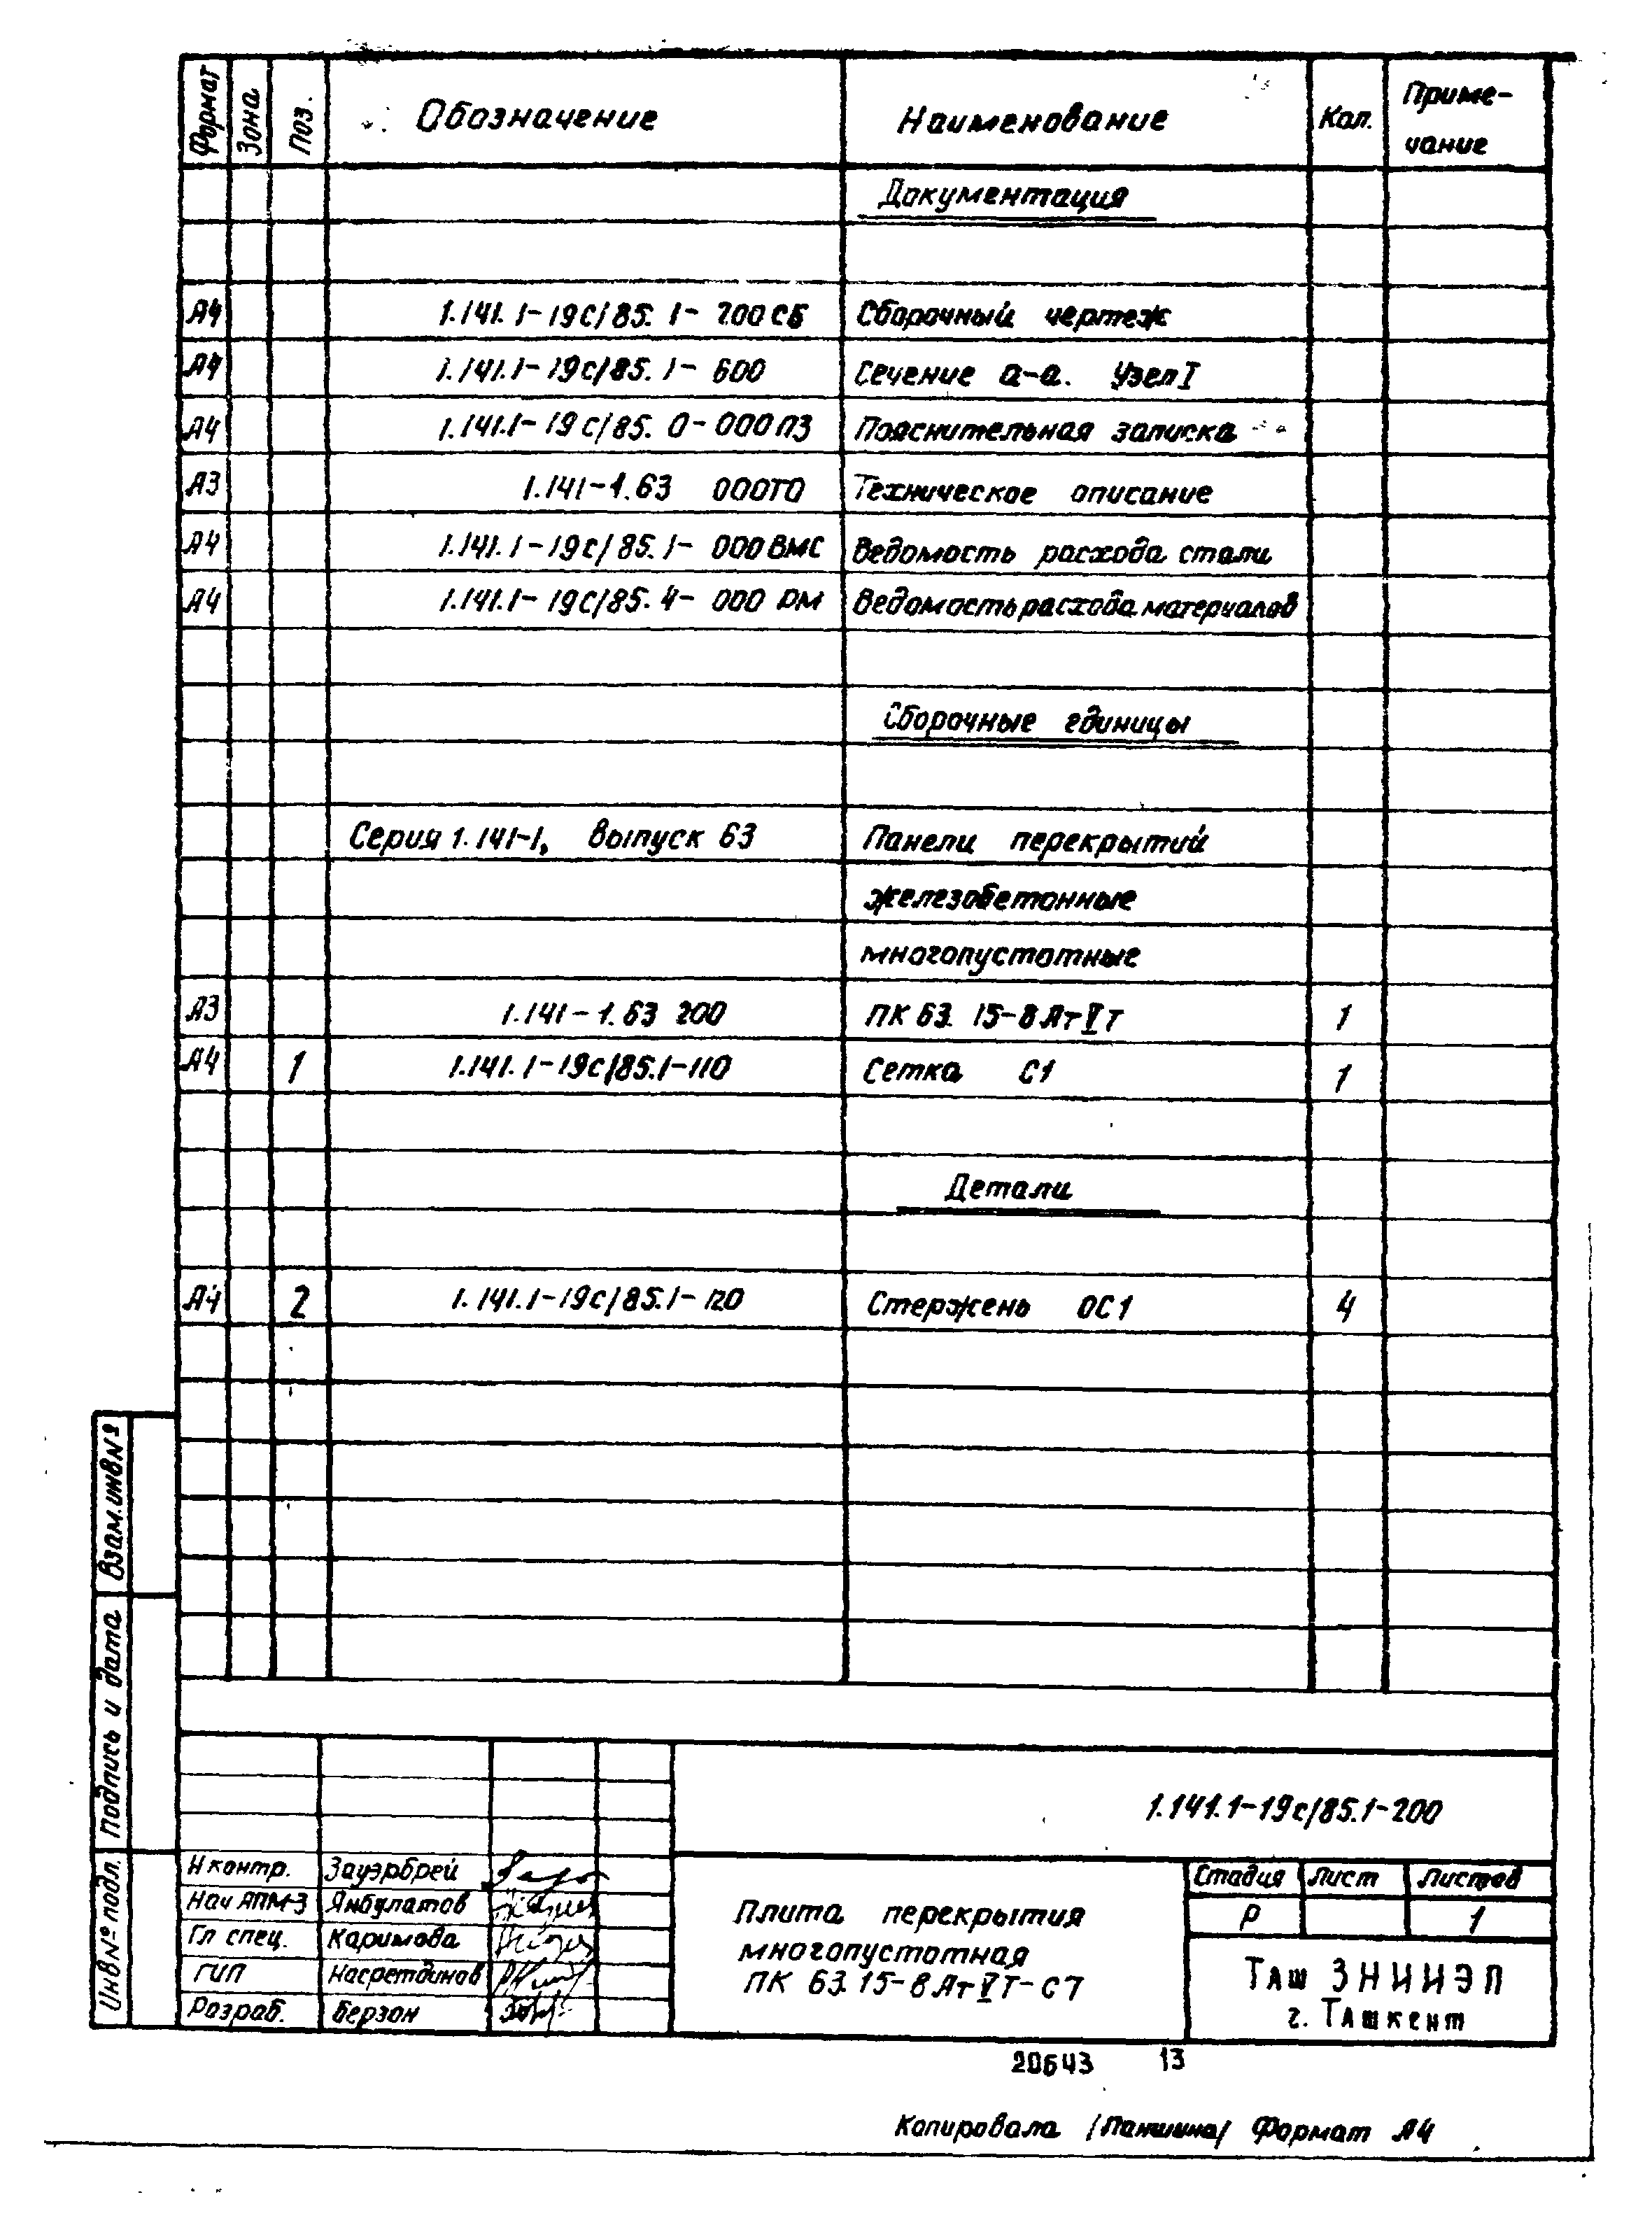 Формат Зона Поз. Обозначение Наименование Кол. Приме-
чание
Документация
А4 1.141.1-19с/85.1-200СБ Сборочный чертеж
А4 1.141.1-19с/85.1-600 Сечение а-а. Узел I
А4 1.141.1-19с/85.0-000ПЗ Пояснительная записка
А3 1.141-1.63 000ТО Техническое описание
А4 1.141.1-19с/85.1-000ВМС Ведомость расхода стали
А4 1.141.1-19с/85.4-000 РМ Ведомость расхода материалов
Сборочные единицы
Серия 1.141-1, выпуск 63 Панели перекрытий
железобетонные
многопустотные
А3 1.141-1.63 200 ПК 63.15-8АтVТ 1
А4 1 1.141.1-19с/85.1-110 Сетка С1 1
Детали
А4 2 1.141.1-19с/85.1-120 Стержень ОС1 4
Взам.инв№
Подпись и дата
Инв№ подл.
1.141.1-19с/85.1-200
Н контр. Зауэрбрей
Нач АПМ-3 Янбулатов
Гл спец. Каримова
ГИП Насретдинов
Разраб. Берзон
Плита перекрытия
многопустотная
ПК 63.15-8АтVТ-С7
Стадия Лист Листов
Р 1
Таш ЗНИИЭП
г. Ташкент
20643 13
Копировала /Паншина/ Формат А4